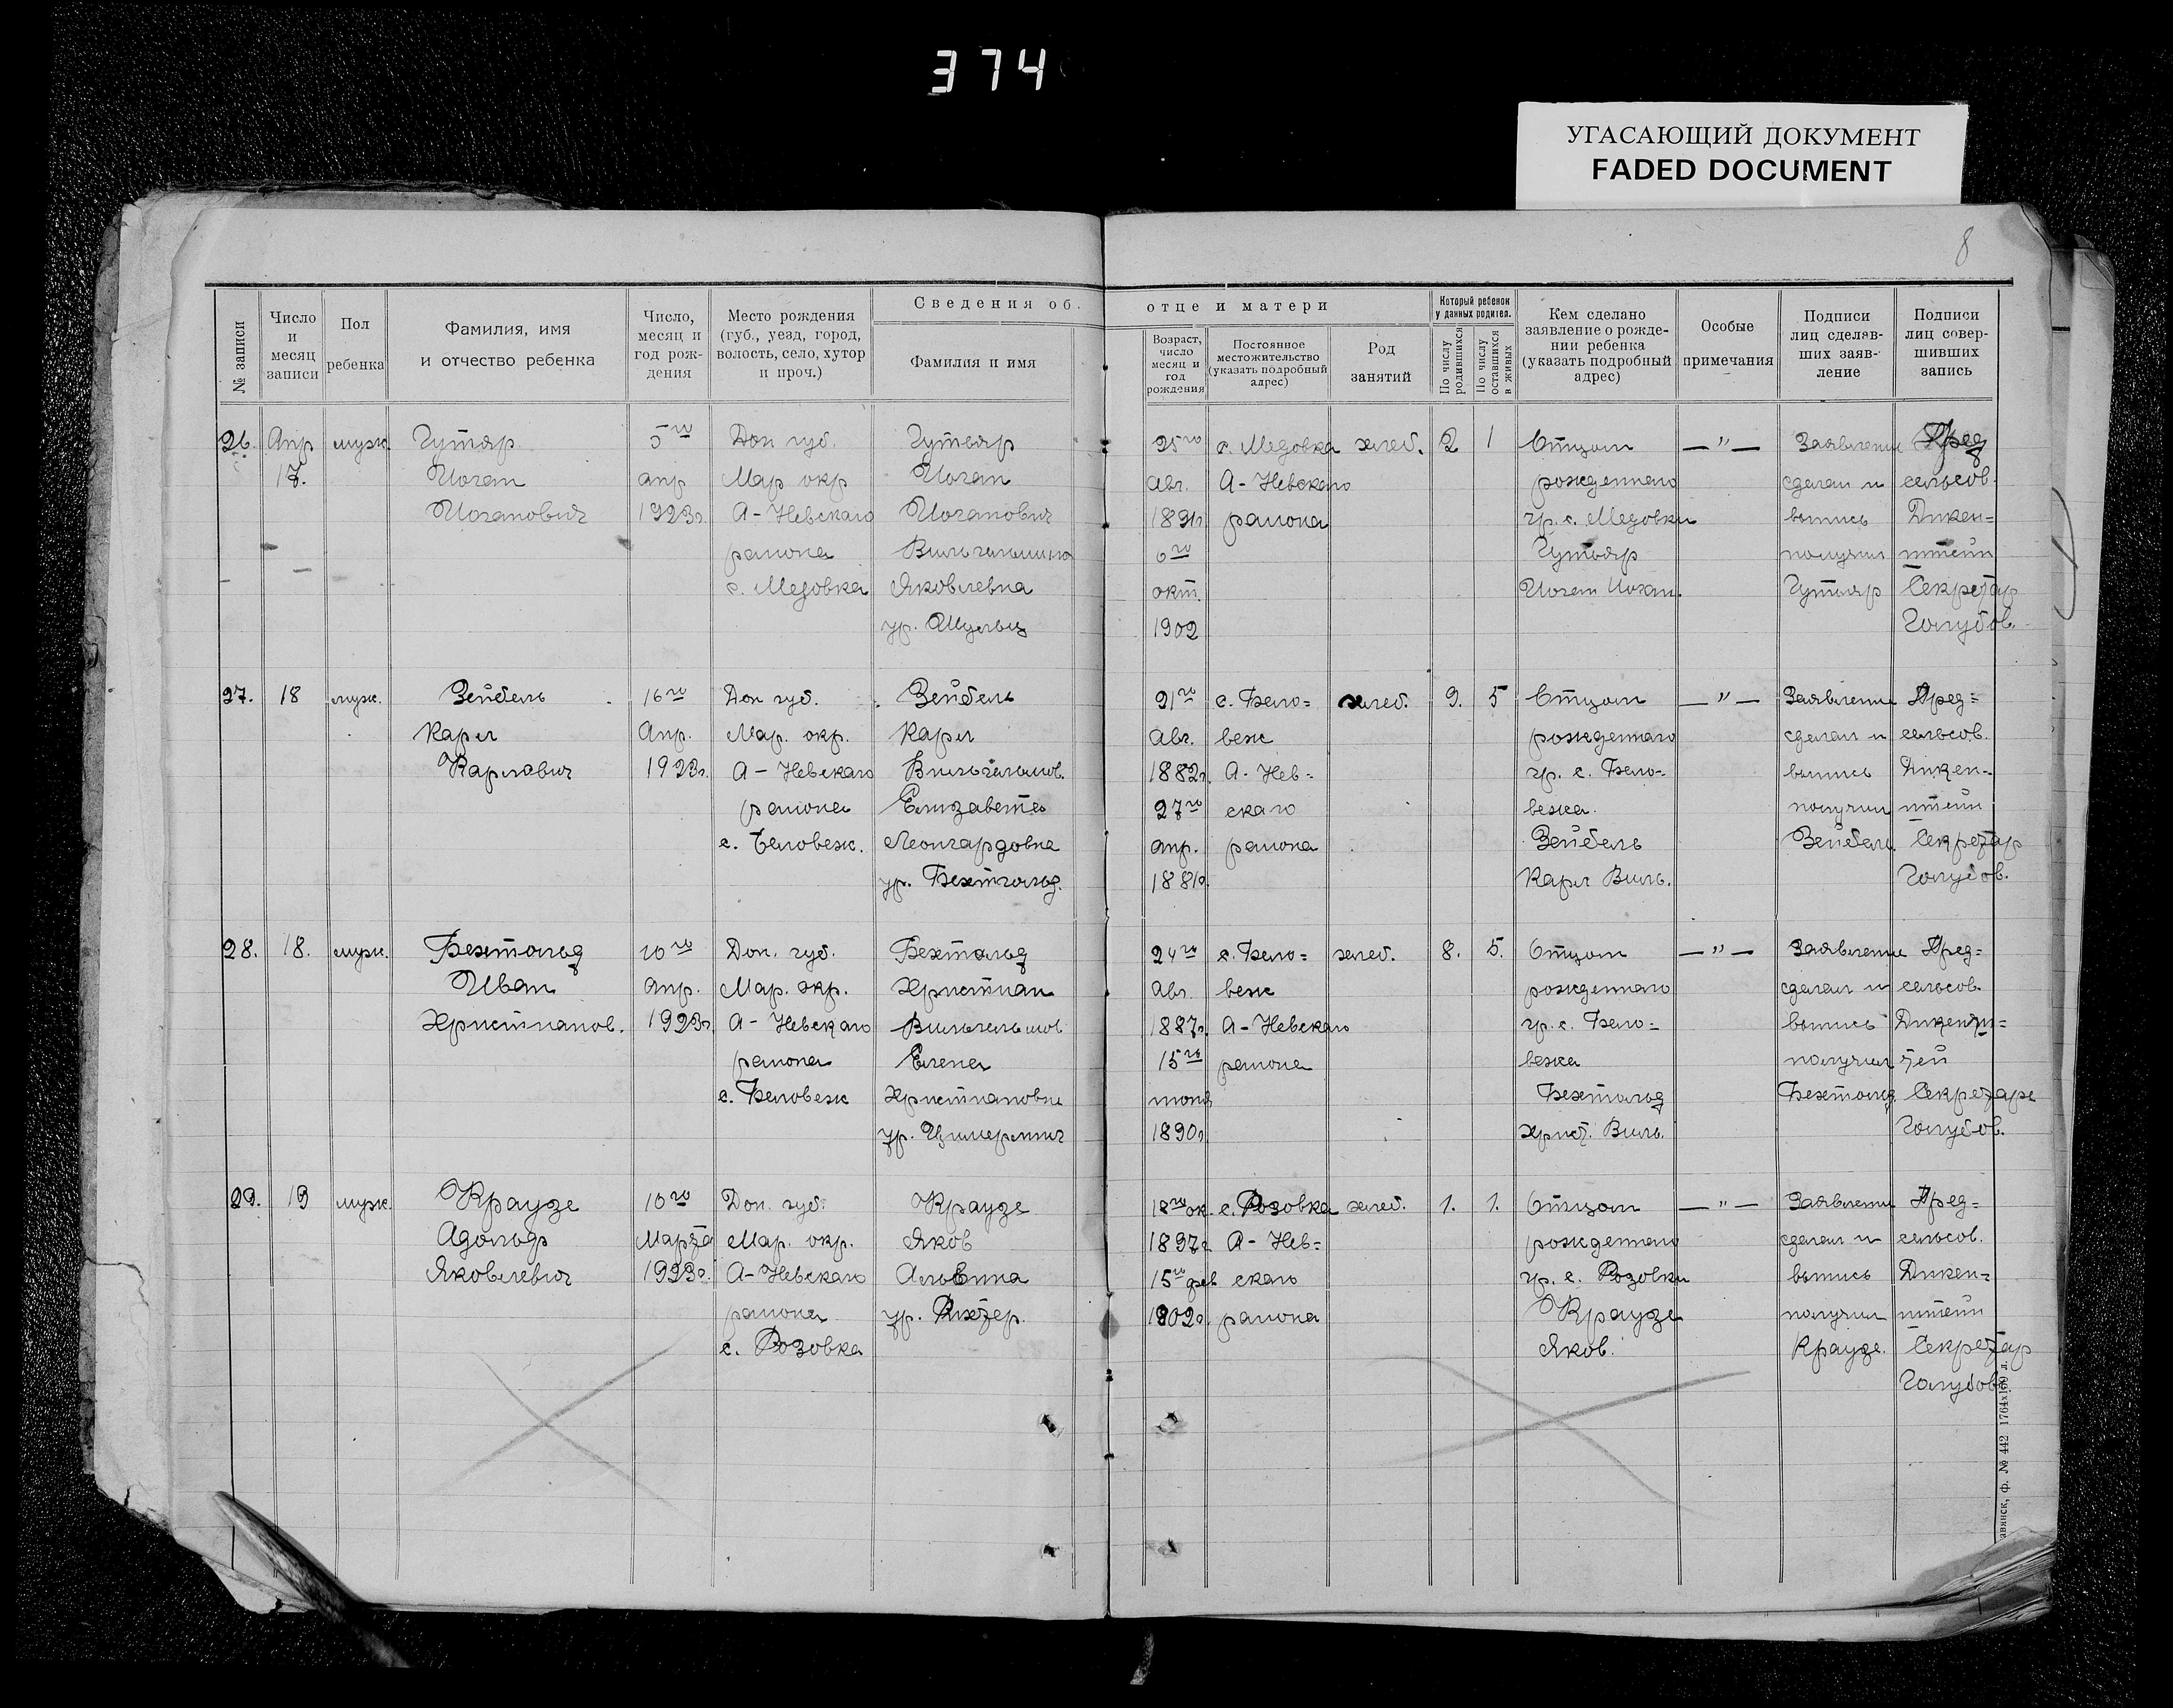 374
УГАСАЮЩИЙ ДОКУМЕНТ
FADED DOCUMENT
8
№ записи
Число и месяц записи
Пол ребенка
Фамилия, имя и отчество ребенка
Число, месяц и год рождения
Место рождения (губ., уезд, город, волость, село, хутор и проч.)
Сведения об отце и матери
Фамилия и имя
Возраст, число месяц и год рождения
Постоянное местожительство (указать подробный адрес)
Род занятий
Который ребенок у данных родител.
По числу родившихся
По числу оставшихся в живых
Кем сделано заявление о рождении ребенка (указать подробный адрес)
Особые примечания
Подписи лиц сделавших заявление
Подписи лиц совершивших запись
26. Апр муж. Гутяр 5го Дон губ. Гутяр 25го с. Медовка хлеб. 2 1 Отцом — " — Заявление Пред
17. Иоган апр Мар окр Иоган Авг. А-Невскаго рожденнаго сделал и сельсов.
Иоганович 1923г. А-Невскаго Иоганович 1891г района гр. с. Медовки выпись Дикен=
района Вильгельмина 6го Гутяр получил штейн
с. Медовка Яковлевна окт. Иоган Иоган. Гутяр Секретар
ур. Шульц 1902 Голубов.
27. 18 муж. Зейбель 16го Дон губ. Зейбель 21го с. Бело= хлеб. 9. 5 Отцом — " — Заявление Пред=
Карл Апр. Мар. окр. Карл Авг. веж рожденнаго сделал и сельсов.
Карлович 1923г. А-Невскаго Вильгельмов. 1882г. А-Нев- гр. с. Бело- выпись Дикен-
района Елизавета 27го скаго вежа. получил штейн
с. Беловеж. Леонгардовна апр. района Зейбель Зейбель Секретар
ур. Бехтольд. 1881г. Карл Виль. Голубов.
28. 18. муж. Бехтольд 10го Дон. губ. Бехтольд 24го с. Бело= хлеб. 8. 5. Отцом — " — Заявление Пред=
Иван апр. Мар. окр. Християн Авг. веж рожденнаго сделал и сельсов.
Християнов. 1923г. А-Невскаго Вильгельмов 1887г. А-Невскаго гр. с. Бело= выпись
района Елена 15го района вежа получил тей
с. Беловеж Християновна Бехтольд Бехтольд Секретарь
ур. 1890г Христ. Виль. Голубов.
29. 19 муж. Краузе 10го Дон. губ. Краузе 18го ок. с. Розовка хлеб. 1. 1. Отцом — " — Заявление Пред=
Адольф Марта Мар. окр. Яков 1897г А-Нев= рожденнаго сделал и сельсов.
Яковлевич 1923г. А-Невскаго Альвина 15го фев скаго гр. с. Розовки выпись Дикен=
района ур. Рихтер. 1902г. района Краузе получил штейн
с. Розовка Яков. Краузе. Секретар
Голубов
авянск, ф. № 442 1764х100 л.